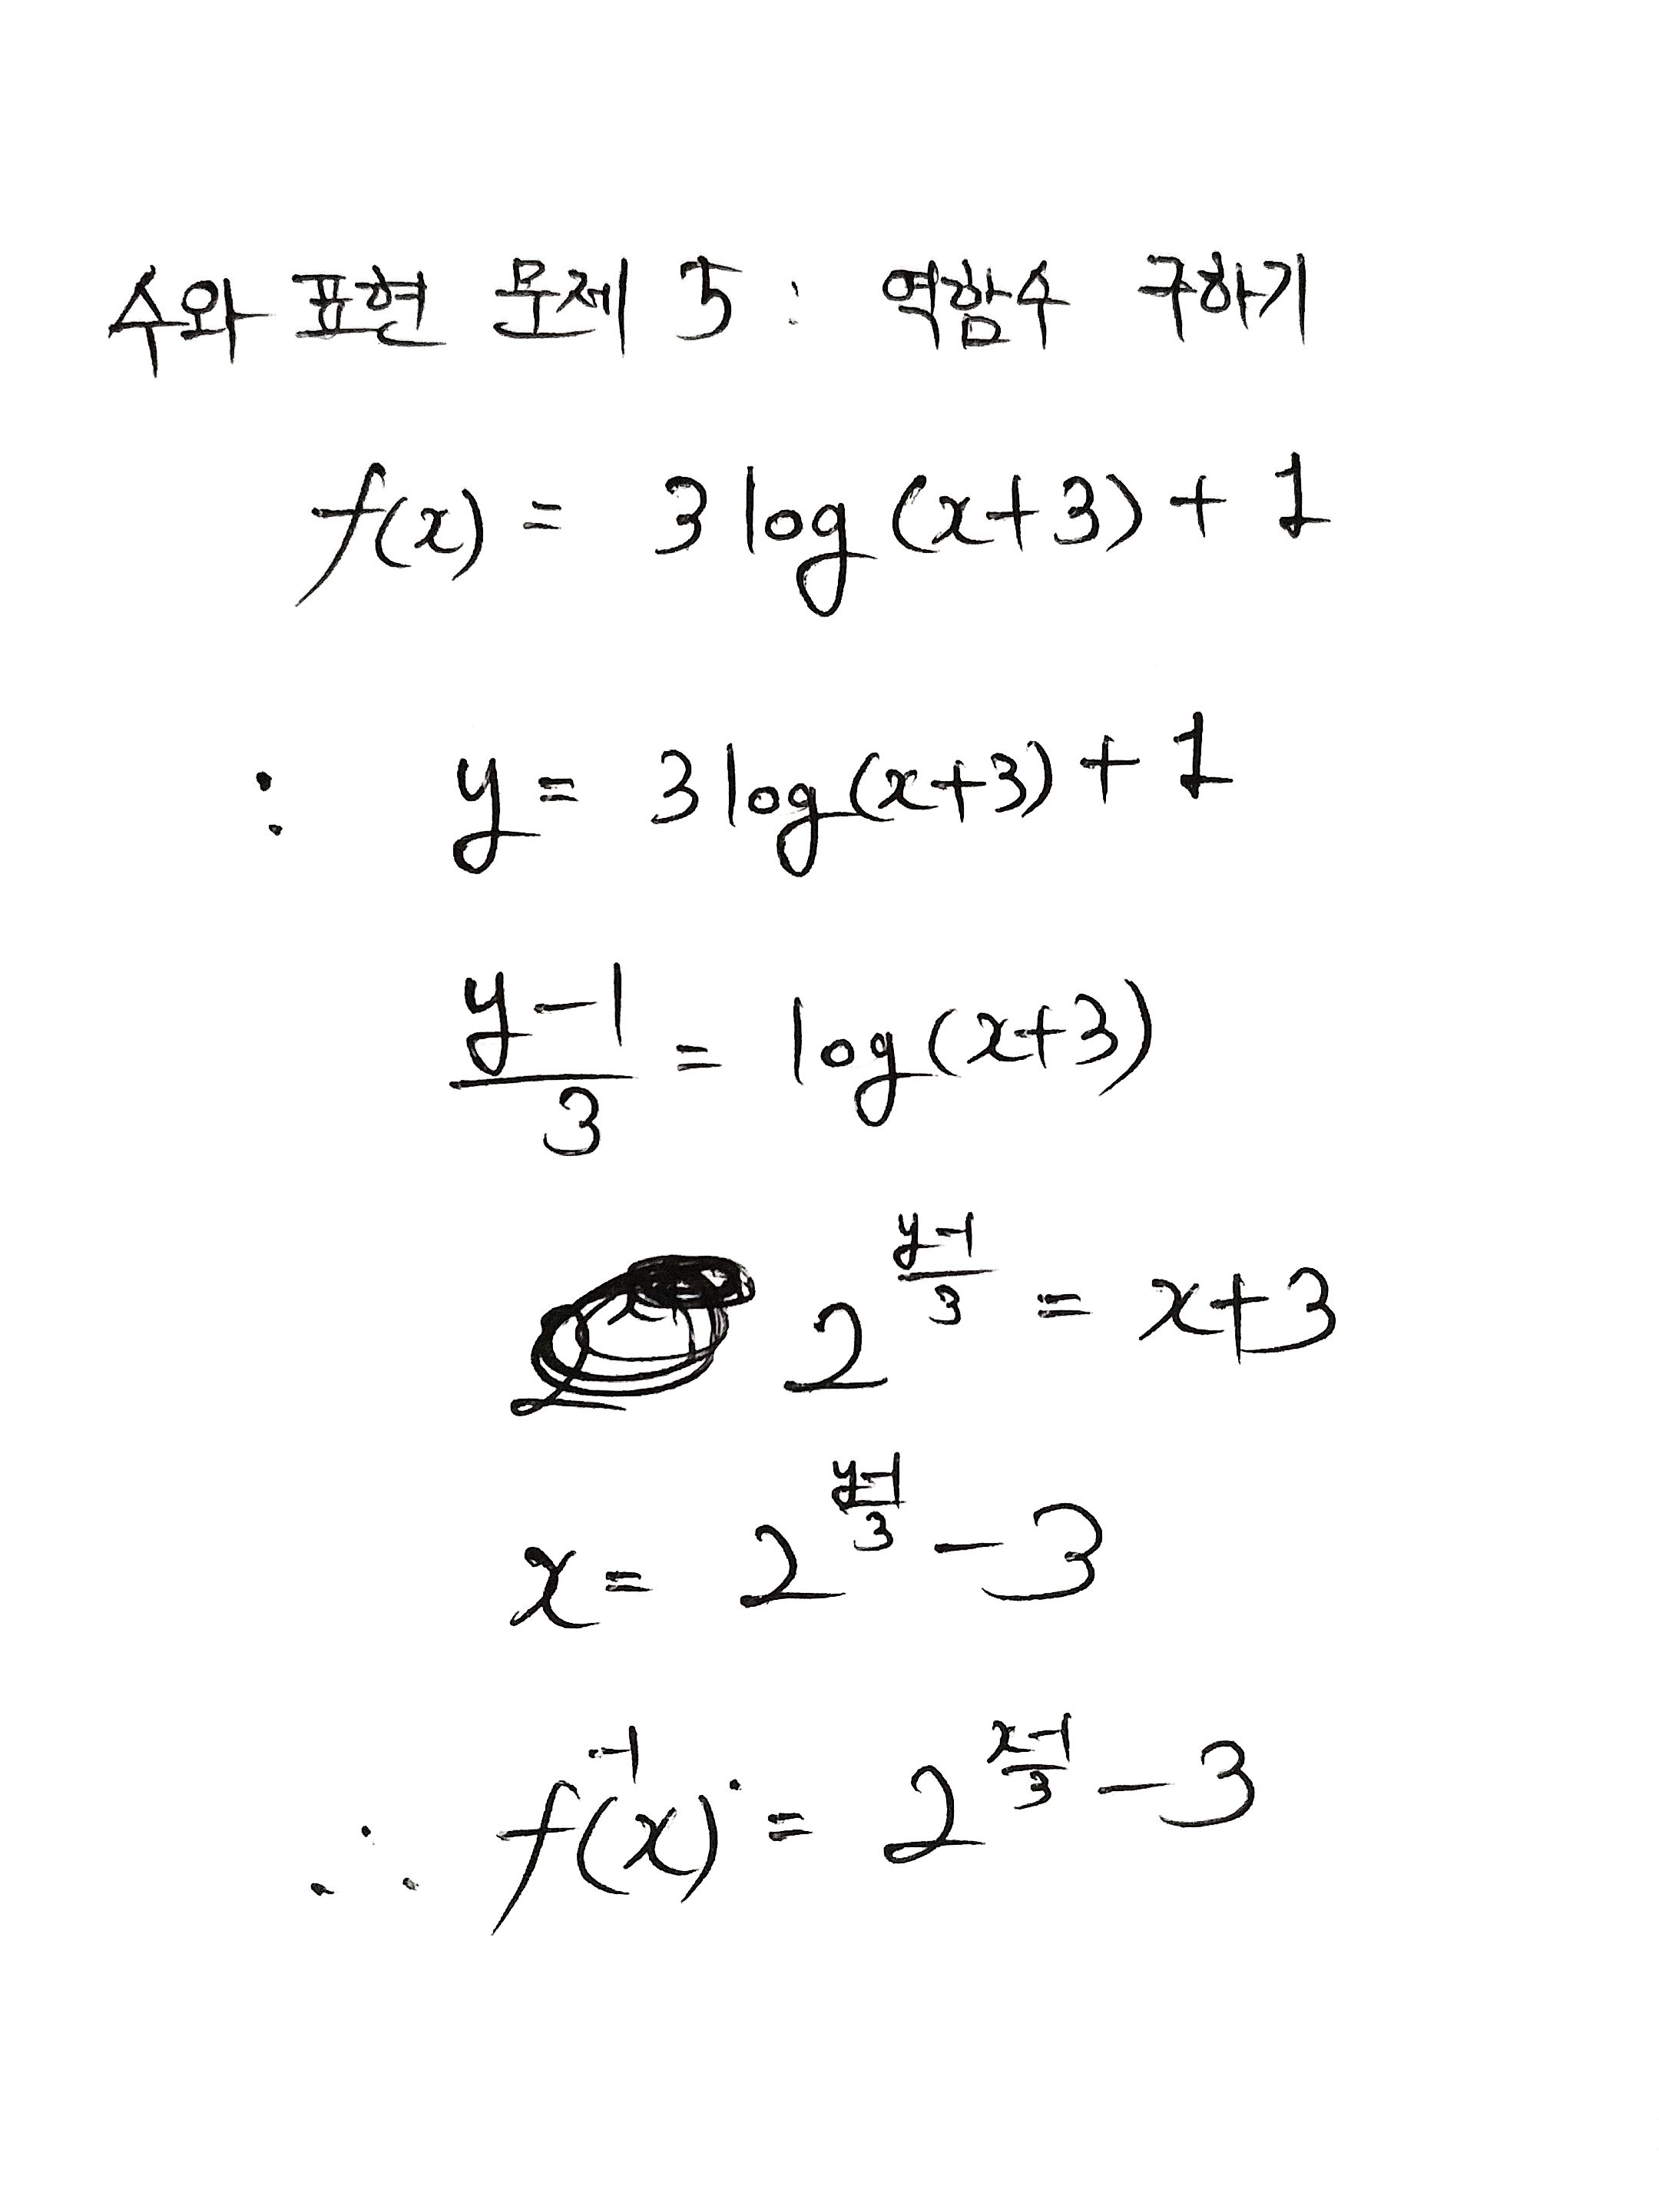 수와 표현 문제 5 : 역함수 구하기
f(x) = 3 log (x+3) + 1
: y = 3 log (x+3) + 1
y-1/3 = log (x+3)
2^(y-1/3) = x+3
x = 2^(y-1/3) - 3
∴ f⁻¹(x) = 2^(x-1/3) - 3